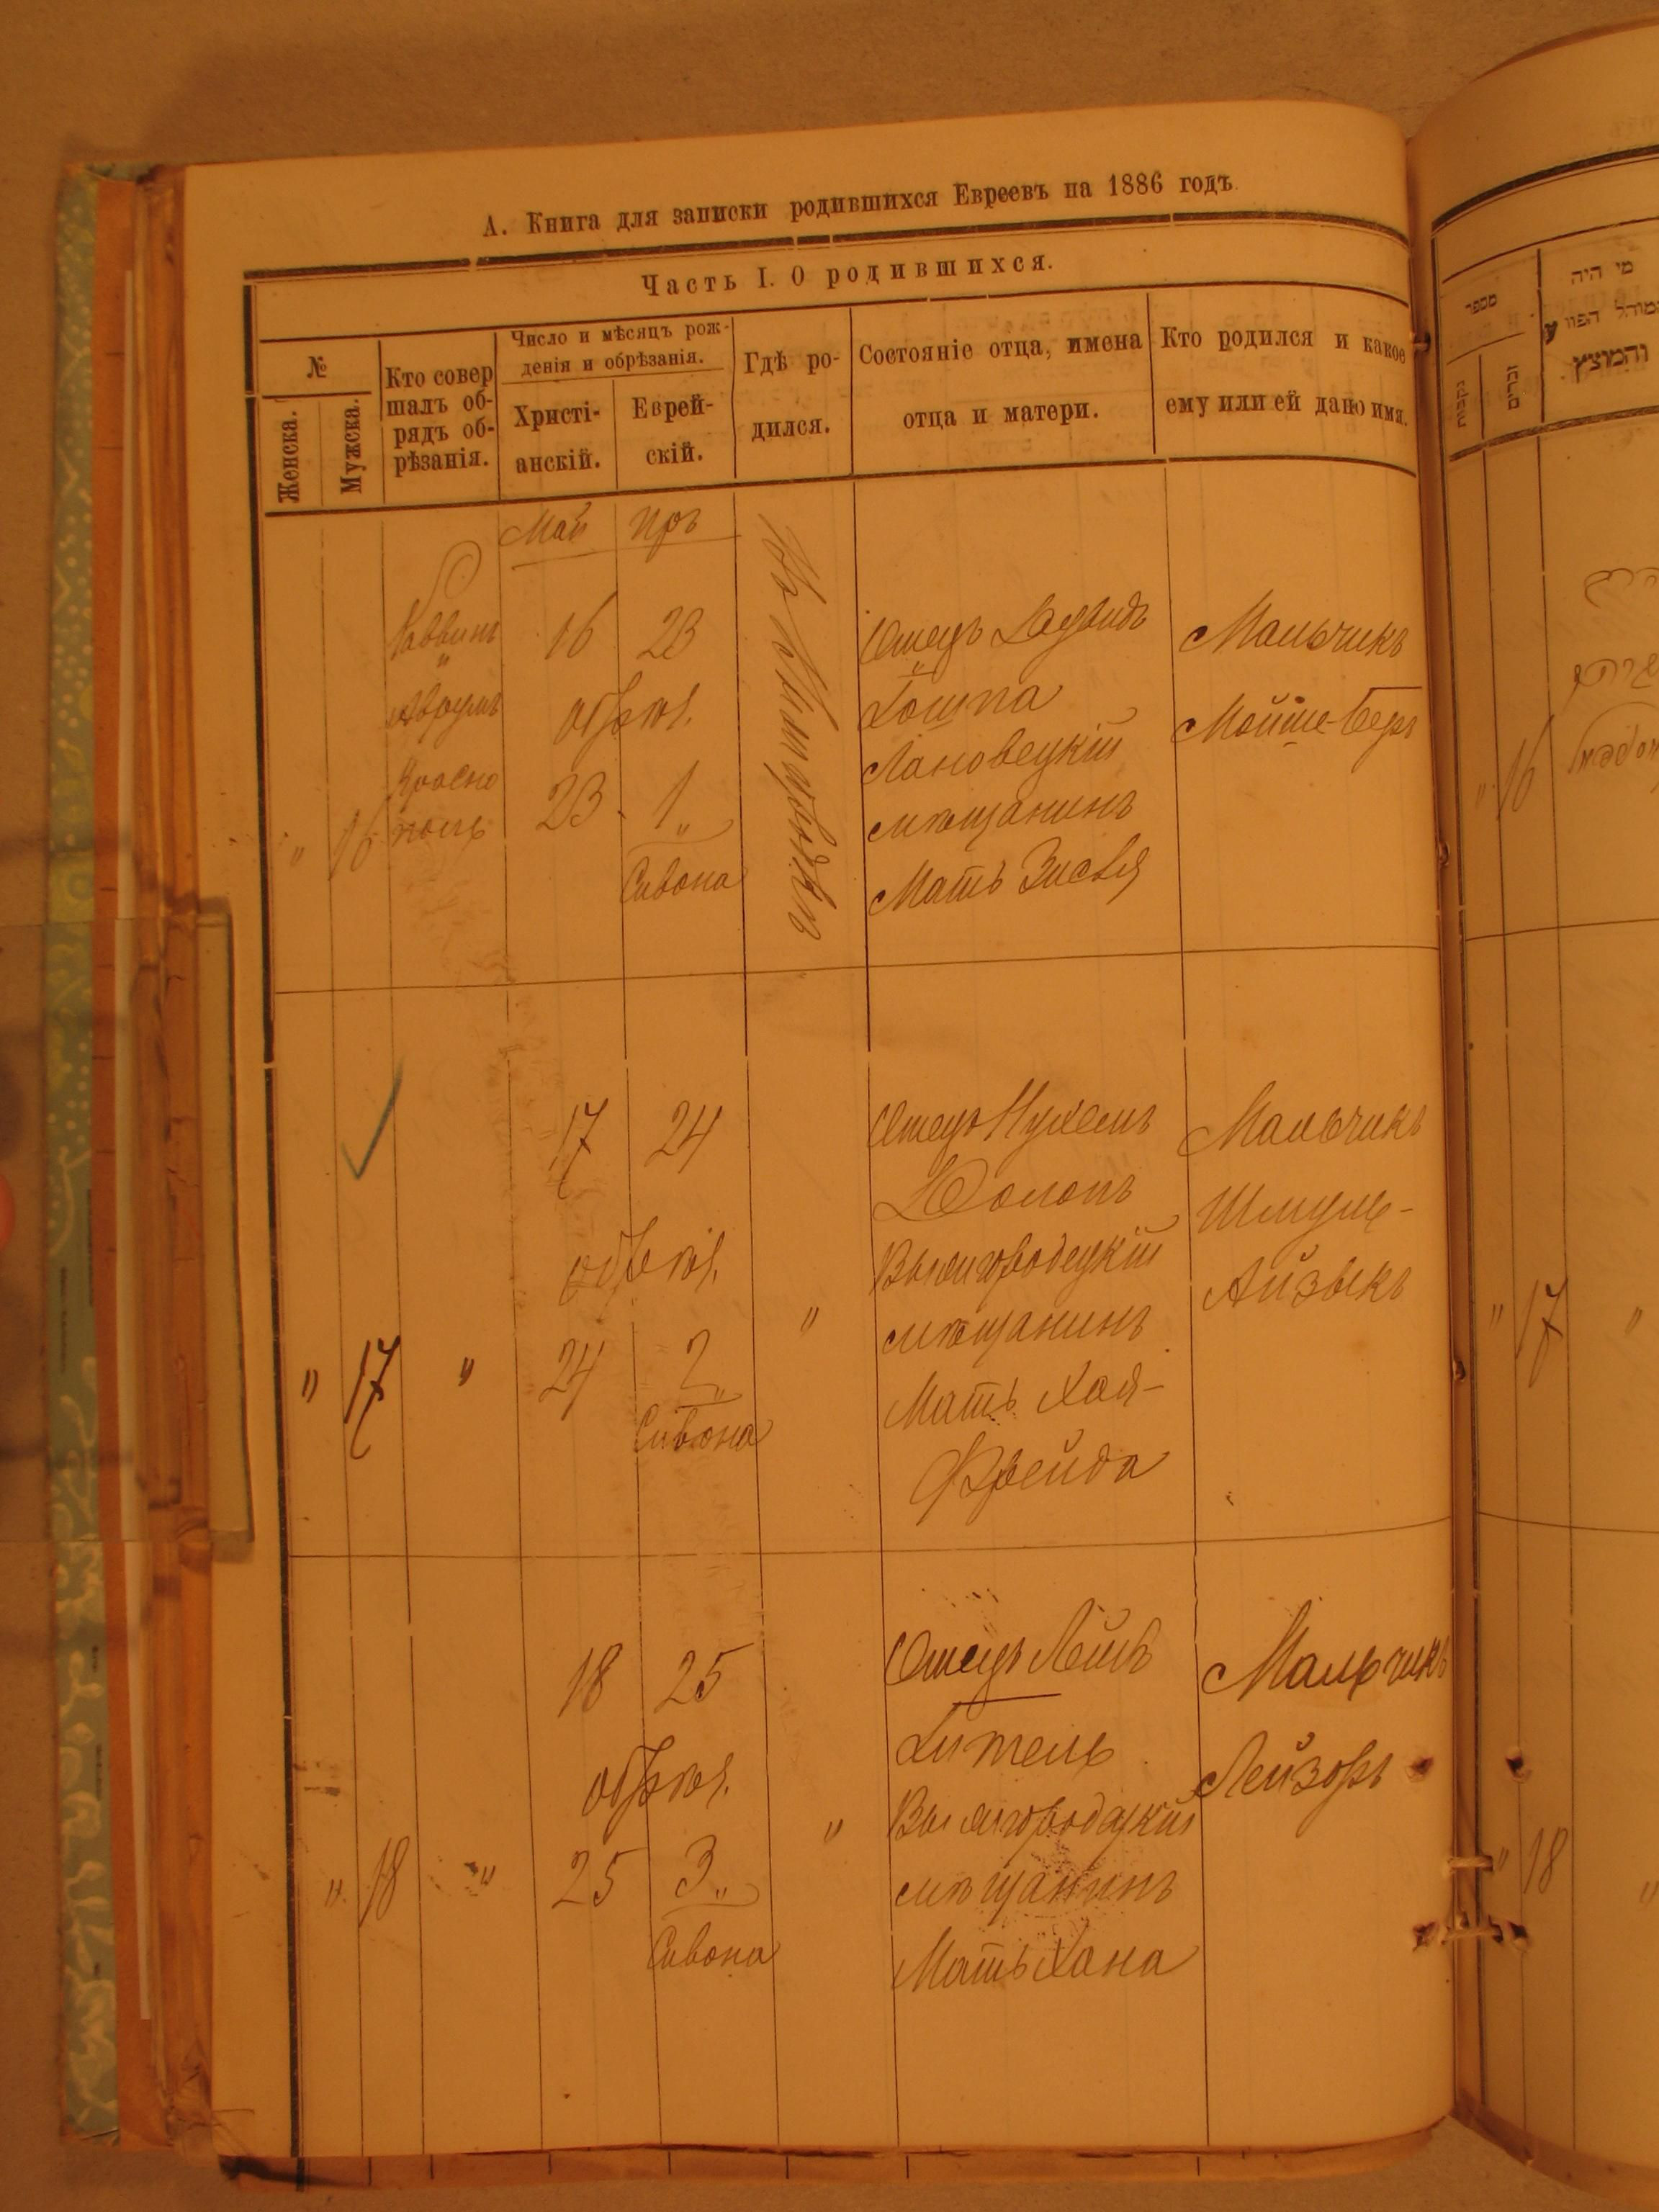 А. Книга для записки родившихся Евреевъ на 1886 годъ
Часть I. О родившихся.
№
Женска.
Мужска.
Кто совер
шалъ об-
рядъ об-
рѣзанія.
Число и мѣсяцъ рож-
денія и обрѣзанія.
Христі-
анскій.
Еврей-
скій.
Гдѣ ро-
дился.
Состояніе отца, имена
отца и матери.
Кто родился и какое
ему или ей дано имя.
Май
" 16
Раввинъ
"
Аврумъ
Красно
поль
16 23
обрѣз.
23 1„
Сивона
Отецъ
Лановецкій
мѣщанинъ
Мать Зисля
Мальчикъ
Мойше-Беръ
" 17 "
17 24
обрѣз.
24 2„
Сивона
"
Отецъ Нухемъ
Вышгородецкій
мѣщанинъ
Мать Хая-
Фрейда
Мальчикъ
Шмуль-
Айзыкъ
" 18 "
18 25
обрѣз.
25 3„
Сивона
"
Отецъ Лейбъ
Вышгородецкій
мѣщанинъ
Мать Хана
Мальчикъ
Лейзоръ
מספר
נקבות
זכרים
מי היה
והמוצץ
" 16
" 17 "
" 18 "